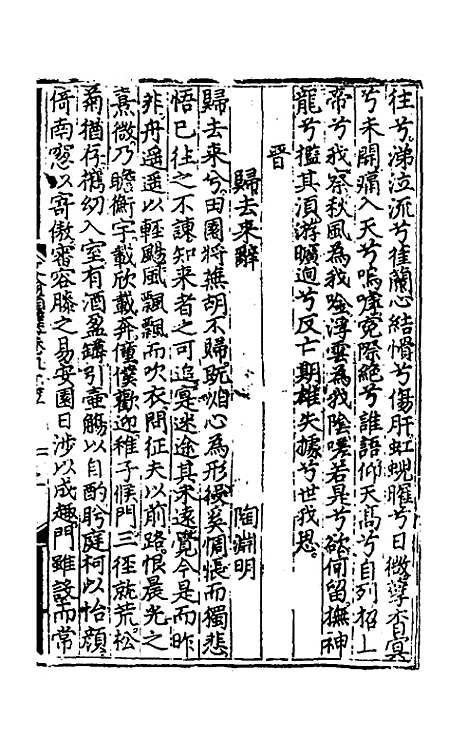 往兮涕泣流兮萑蘭心結愲兮傷肝虹蜺曜兮日微孽杳冥
兮未開痛入天兮嗚呼冤際絕兮誰語仰天高兮自列招上
帝兮我察秋風為我唫浮雲為我陰嗟若是兮欲何留撫神
龍兮攬其須游曠迥兮反亡期雄失據兮世我思
晉
歸去來辭 陶淵明
歸去來兮田園將蕪胡不歸既自心為形役奚惆悵而獨悲
悟已往之不諫知來者之可追寔迷途其未遠覺今是而昨
非舟遥遥以輕颺風飄飄而吹衣問征夫以前路恨晨光之
熹微乃瞻衡宇載欣載奔僮僕歡迎稚子候門三徑就荒松
菊猶存攜幼入室有酒盈罇引壺觴以自酌眄庭柯以怡顏
倚南窓以寄傲審容膝之易安園日涉以成趣門雖設而常